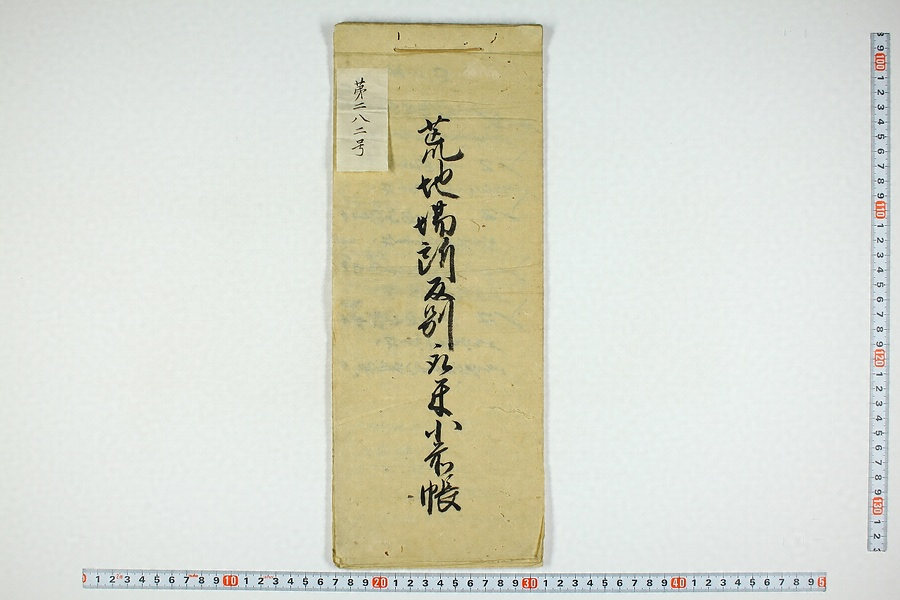 第二八二号
荒地場所反別取米小前帳
1 2 3 4 5 6 7 8 9 10 1 2 3 4 5 6 7 8 9 20 1 2 3 4 5 6 7 8 9 30 1 2 3 4 5 6 7 8 9 40 1 2 3 4 5 6 7 8 9
9 100 1 2 3 4 5 6 7 8 9 110 1 2 3 4 5 6 7 8 9 120 1 2 3 4 5 6 7 8 9 130 1 2